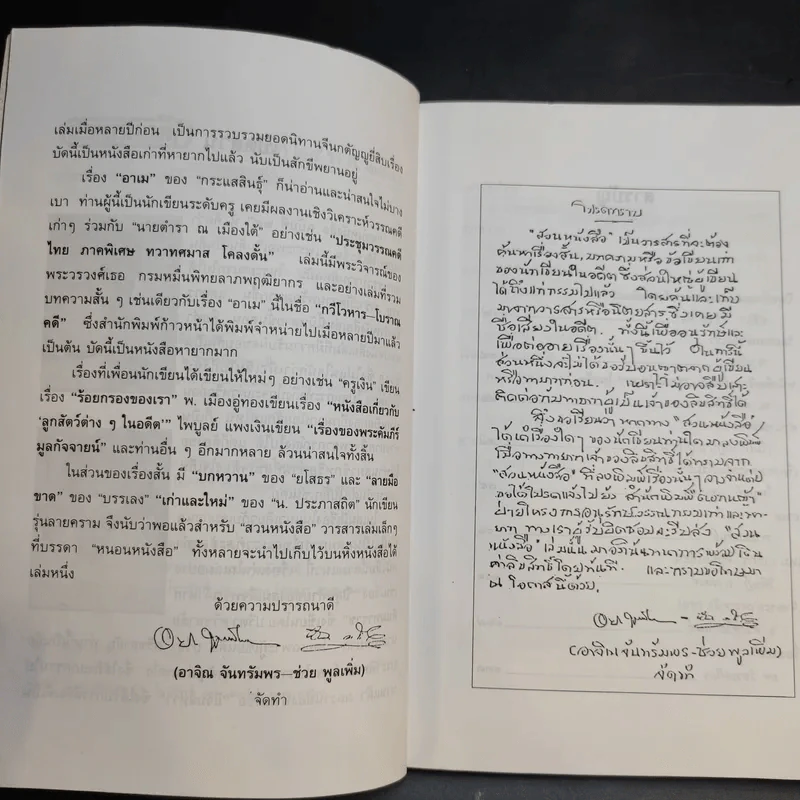 เล่มเมื่อหลายปีก่อน เป็นการรวบรวมยอดนิทานจีนกตัญญูยี่สิบเรื่อง
บัดนี้เป็นหนังสือเก่าที่หายากไปแล้ว นับเป็นสักขีพยานอยู่
เรื่อง “อาเม” ของ “กระแสสินธุ์” ก็น่าอ่านและน่าสนใจไม่บาง
เบา ท่านผู้นี้เป็นนักเขียนระดับครู เคยมีผลงานเชิงวิเคราะห์วรรณคดี
เก่าๆ ร่วมกับ “นายตำรา ณ เมืองใต้” อย่างเช่น “ประชุมวรรณคดี
ไทย ภาคพิเศษ ทวาทศมาส โคลงดั้น” เล่มนี้มีพระวิจารณ์ของ
พระวรวงศ์เธอ กรมหมื่นพิทยลาภพฤฒิยากร และอย่างเล่มที่รวม
บทความสั้น ๆ เช่นเดียวกับเรื่อง “อาเม” นี้ในชื่อ “กวีโวหาร–โบราณ
คดี” ซึ่งสำนักพิมพ์ก้าวหน้าได้พิมพ์จำหน่ายไปเมื่อหลายปีมาแล้ว
เป็นต้น บัดนี้เป็นหนังสือหายากมาก
เรื่องที่เพื่อนนักเขียนได้เขียนให้ใหม่ๆ อย่างเช่น “ครูเงิน” เขียน
เรื่อง “ร้อยกรองของเรา” พ. เมืองอู่ทองเขียนเรื่อง “หนังสือเกี่ยวกับ
‘ลูกสัตว์ต่าง ๆ ในอดีต’” ไพบูลย์ แพงเงินเขียน “เรื่องของพระคัมภีร์
มูลกัจจายน์” และท่านอื่น ๆ อีกมากหลาย ล้วนน่าสนใจทั้งสิ้น
ในส่วนของเรื่องสั้น มี “บกหวาน” ของ “ยโสธร” และ “ลายมือ
ขาด” ของ “บรรเลง” “เก่าและใหม่” ของ “น. ประภาสถิต” นักเขียน
รุ่นลายคราม จึงนับว่าพอแล้วสำหรับ “สวนหนังสือ” วารสารเล่มเล็กๆ
ที่บรรดา “หนอนหนังสือ” ทั้งหลายจะนำไปเก็บไว้บนหิ้งหนังสือได้
เล่มหนึ่ง
ด้วยความปรารถนาดี
(อาจิณ จันทรัมพร–ช่วย พูลเพิ่ม)
จัดทำ
โปรดทราบ
“สวนหนังสือ” เป็นวารสารที่จะต้อง
ค้นหาเรื่องสั้น, บทความ หรือข้อเขียนเก่า
ของนักเขียนในอดีต ซึ่งส่วนใหญ่ผู้เขียน
ได้ถึงแก่กรรมไปแล้ว โดยค้นและเก็บ
มาจากวารสารหรือนิตยสาร ซึ่งเคยมี
ชื่อเสียงในอดีต. ทั้งนี้เพื่ออนุรักษ์และ
เพื่อต่ออายุเรื่องนั้นๆ ขึ้นไว้ ในการนี้
ส่วนหนึ่งเราไม่ได้ขออนุญาตจากผู้เขียน
หรือทายาทก่อน. เพราะไม่อาจสืบเสาะ
ติดต่อกับทายาทผู้เป็นเจ้าของลิขสิทธิ์ได้
จึงขอเรียนว่า หากทาง “สวนหนังสือ”
ได้นำเรื่องใดๆ ของนักเขียนท่านใดมาลงพิมพ์
เมื่อทางทายาทเจ้าของลิขสิทธิ์ได้ทราบจาก
“สวนหนังสือ” ที่ลงพิมพ์เรื่องนั้นๆ วางจำหน่าย
ขอได้โปรดแจ้งไปยัง สำนักพิมพ์ต้นอ้อ
ทางเราผู้รับผิดชอบจะรีบส่ง “สวน
หนังสือ” เล่มนั้นมาอภินันทนาการพร้อมเงิน
ค่าลิขสิทธิ์โดยทันที. และกราบขอโทษมา
ณ โอกาสนี้ด้วย.
(อาจิณ จันทรัมพร-ช่วย พูลเพิ่ม)
จัดทำ